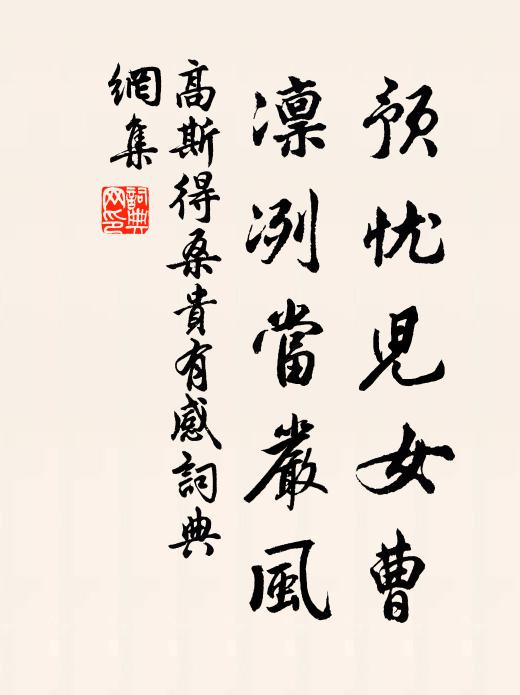 預忧児女曹
凛冽當嚴風
高斯得桑貴有感詞典
網集
詞典网印